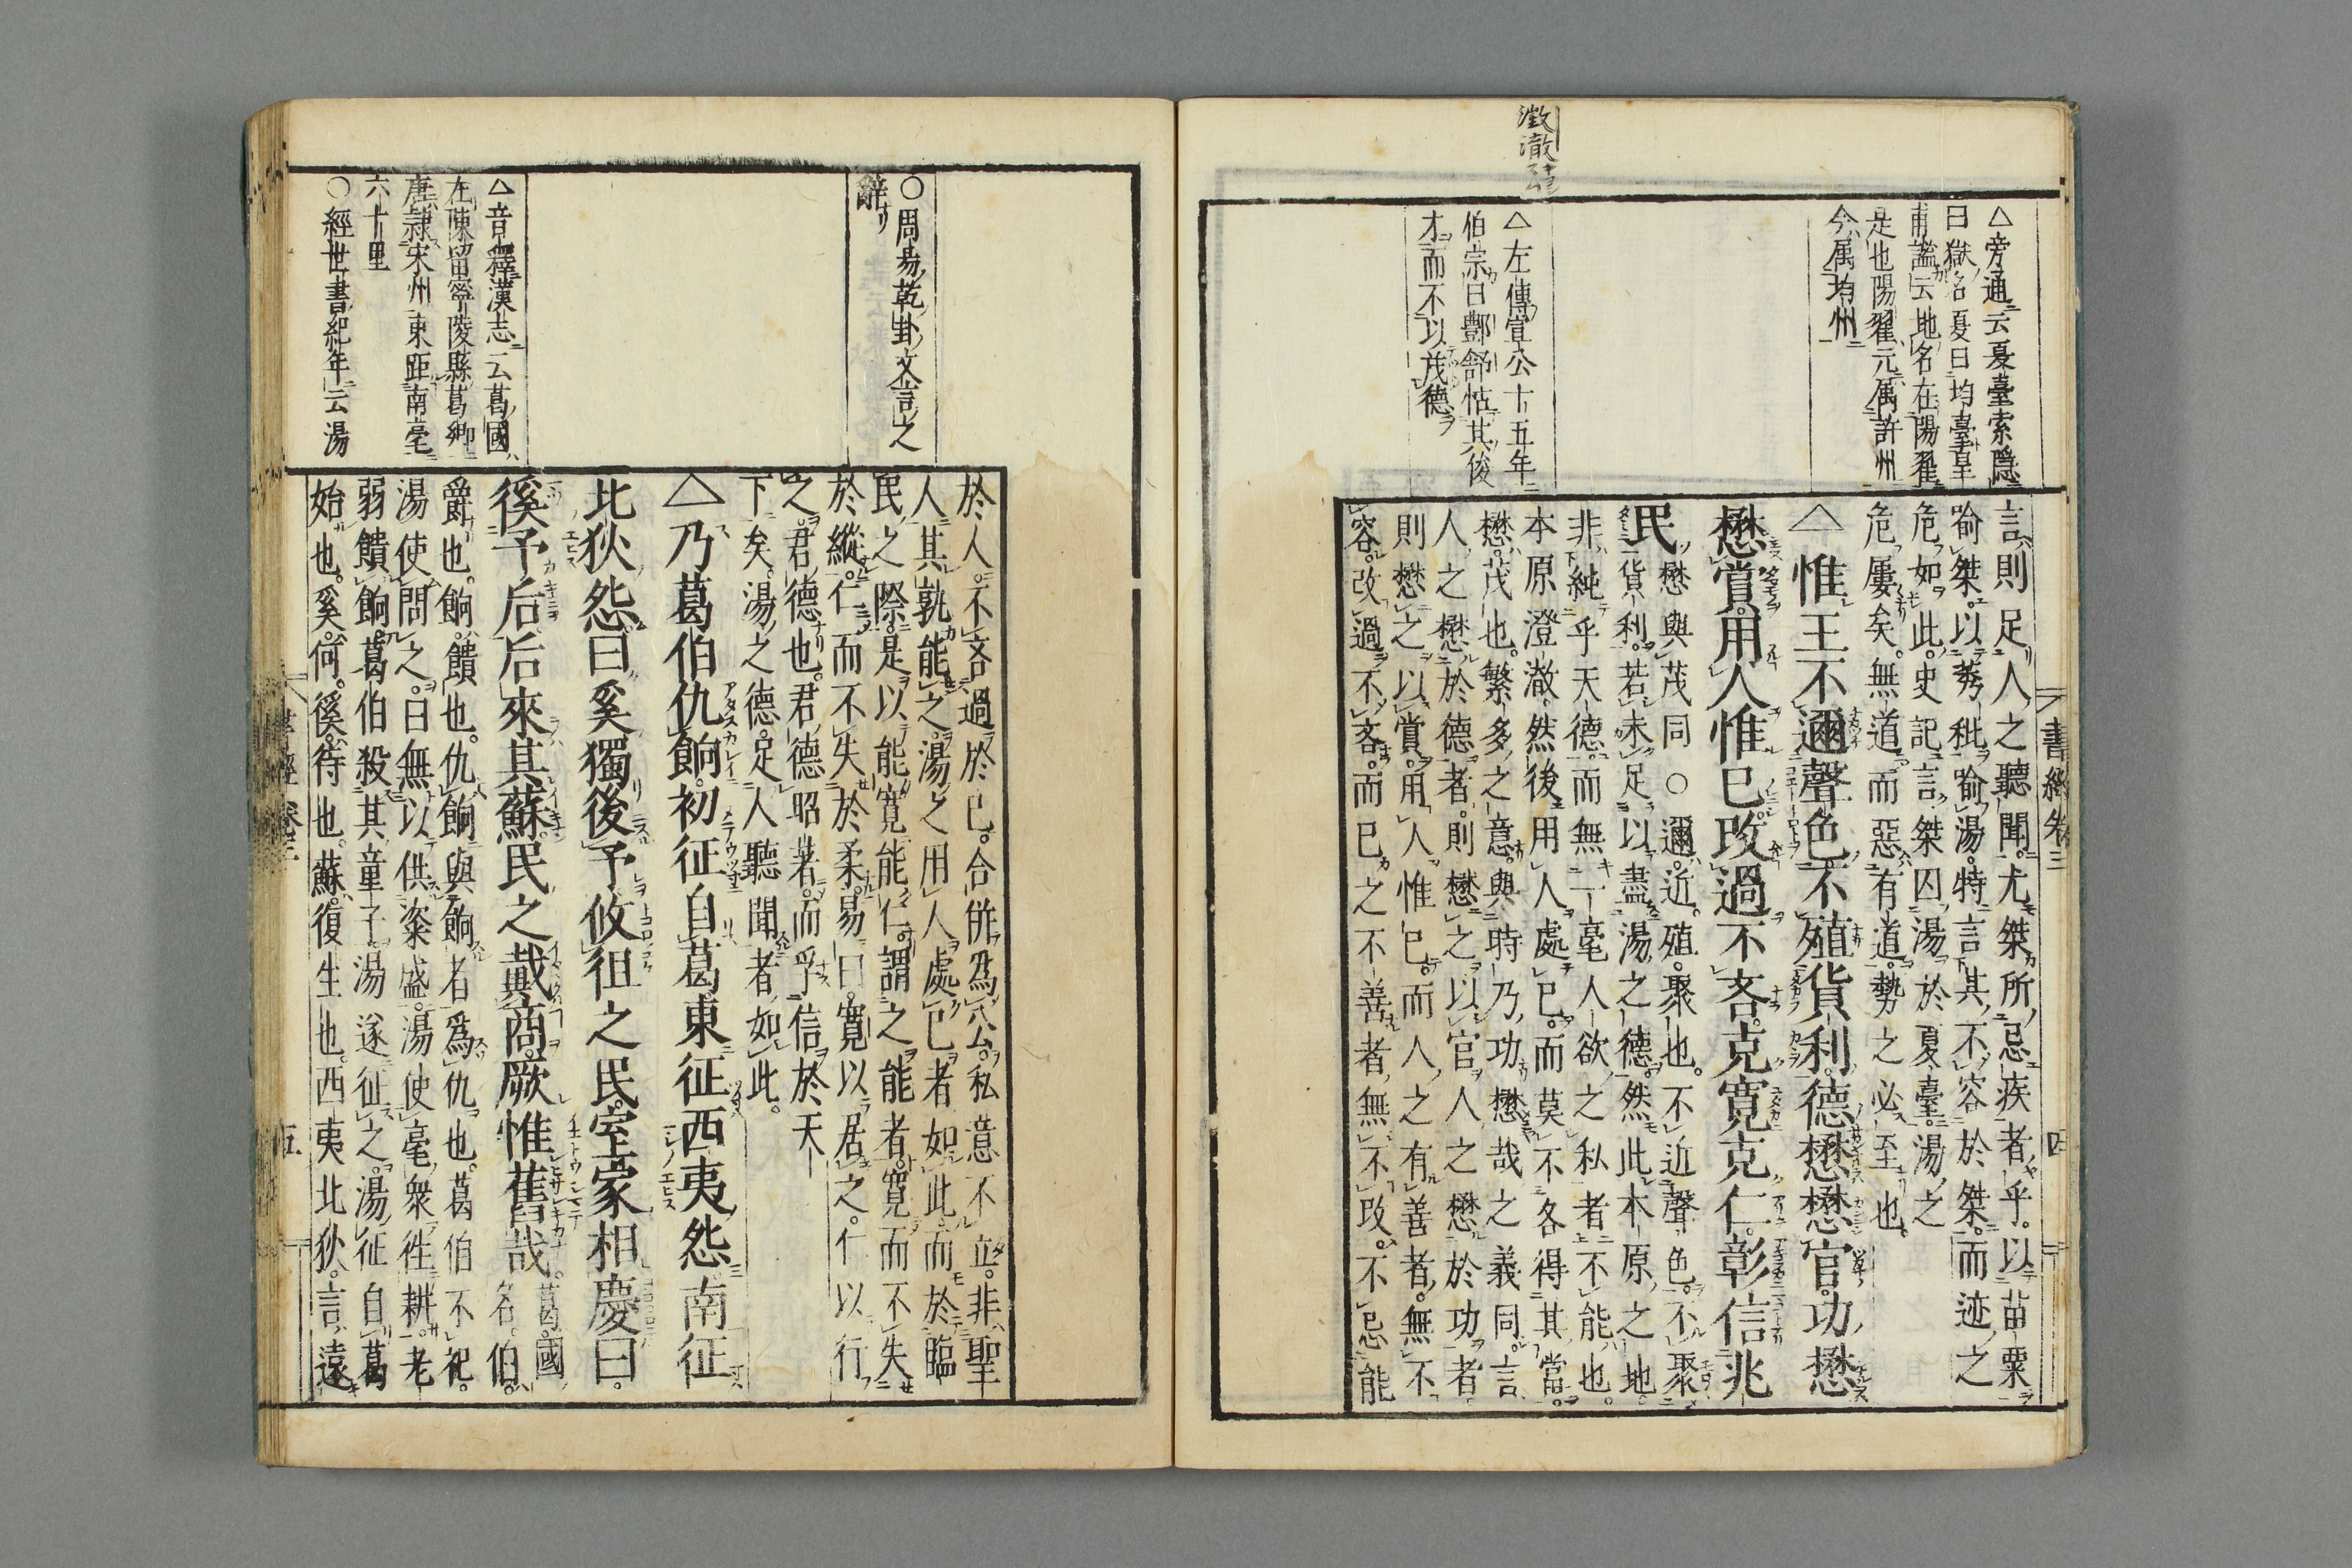 澂澈
△旁通云夏臺索隱
曰獄名夏曰均臺皇
甫謐云地名在陽翟
是也陽翟元属許州
今属均州
△左傳宣公十五年
伯宗曰酆舒怙其俊
才而不以茂德
書經卷三
四
言則足人之聽聞尤桀所忌疾者乎以苗粟
喻桀以莠秕喻湯特言其不容於桀而迹之
危如此史記言桀囚湯於夏臺湯之
危屢矣無道而惡有道勢之必至也
△惟王不邇聲色不殖貨利德懋懋官功懋
懋賞用人惟已改過不吝克寬克仁彰信兆
民懋與茂同○邇近殖聚也不近聲色不聚
貨利若未足以盡湯之德然此本原之地
非純乎天德而無一毫人欲之私者不能也
本原澄澈然後用人處已而莫不各得其當
懋茂也繁多之意與時乃功懋哉之義同言
人之懋於德者則懋之以官人之懋於功者
則懋之以賞用人惟已而人之有善者無不
容改過不吝而已之不善者無不改不忌能
○周易乾卦文言之
辭
△音釋漢志云葛國
在陳留寧陵縣葛鄉
唐隷宋州東距南亳
六十里
○經世書紀年云湯
於人不吝過於已合併為公私意不立非聖
人其孰能之湯之用人處已者如此而於臨
民之際是以能寬能仁謂之能者寬而不失
於縱仁而不失於柔易曰寬以居之仁以行
之君德也君德昭著而孚信於天
下矣湯之德足人聽聞者如此
△乃葛伯仇餉初征自葛東征西夷怨南征
北狄怨曰奚獨後予攸徂之民室家相慶曰
徯予后后來其蘇民之戴商厥惟舊哉葛國
名伯
爵也餉饋也仇餉與餉者為仇也葛伯不祀
湯使問之曰無以供粢盛湯使亳衆往耕老
弱饋餉葛伯殺其童子湯遂征之湯征自葛
始也奚何徯待也蘇復生也西夷北狄言遠
五